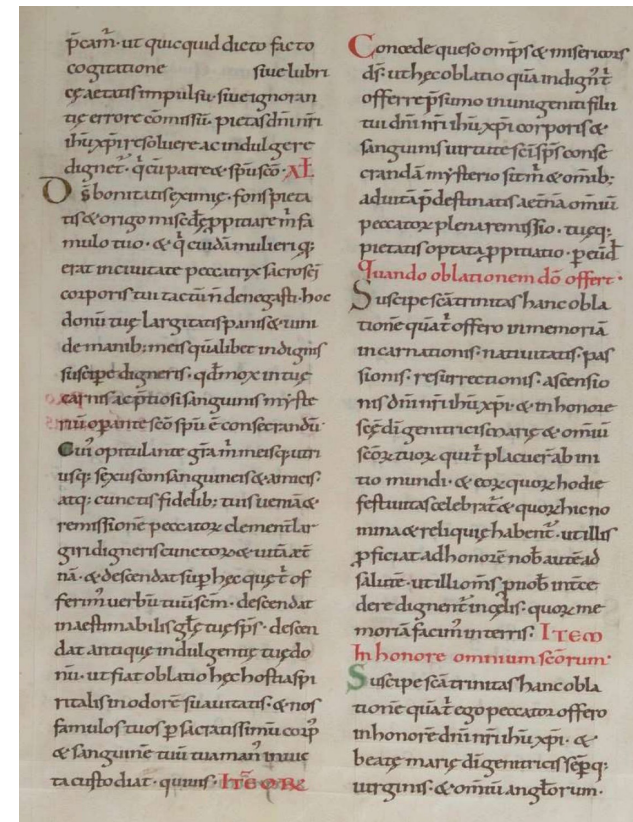 p̄cam̄· ut quicquid dicto facto
cogitatione siue lubri
cę aetatis impulsu· siue ignoran
tię errore cōmissū· pietas dn̄i nr̄i
ihū xp̄i resoluere ac indulgere
dignet̄· q̄ cū patre & sp̄u scō·
D s̄ bonitatis eximię· fons pieta
tis & origo misc̄dę ꝓpitiare m̄ fa
mulo tuo· & q̄ cuidā mulieri q;
erat in ciuitate peccatrix sacrosc̄i
corporis tui tactū n̄ denegasti· hoc
donū tuę largitatis panis & uini
de manib; meis qualibet indignis
suscipe digneris· qd̄ mox in tuę
carnis ac p̄tiosi sanguinis myste
riū operante scō sp̄u ē consecrandū·
Cui opitulante gr̄a m̄ meisq; utri
usq; sexus consanguineis & amicis·
atq; cunctis fidelib; tuis ueniā &
remissionē peccatoꝝ clement̄ lar
giri digneris cunctoꝝ & uitā aet̄
nā· & descendat sup̄ hęc quę t̄ of
ferim̓ uerbū tuū sc̄m· descendat
inaestimabilis glę tuę sp̄s· descen
dat antiquę indulgentię tuę do
nū· ut fiat oblatio hęc hostia spi
ritalis in odorē suauitatis· & nos
famulos tuos ꝑ sacratissimū corp̓
& sanguinē tuū tua man̓ inuic
ta custodiat· qui uiuis·
Concede queso omp̄s & misericors
ds̄· ut hęc oblatio quā indign̓ t̄
offerre p̄sumo in unigeniti filii
tui dn̄i nr̄i ihū xp̄i corporis &
sanguinis uirtute sc̄i sp̄s conse
crandā mysterio sit m̄ & omib;
ad uitā p̄destinatis aet̄nā omiū
peccatoꝝ plena remissio· tuęq;
pietatis optata ꝓpitiatio· ꝑ eund̄
Quando oblationem dō offert·
Suscipe sc̄a trinitas hanc obla
tionē quā t̄ offero in memoriā
incarnationis· natiuitatis· pas
sionis· resurrectionis· ascensio
nis dn̄i nr̄i ihū xp̄i· & in honore
sc̄ę dī genitricis marię & omiū
sc̄oꝝ tuoꝝ qui t̄ placuer̄ ab ini
tio mundi· & eoꝝ quoꝝ hodie
festiuitas celebrat̄ & quoꝝ hic no
mina & reliquię habent̄· ut illis
ꝓficiat ad honorē nob̄ autē ad
salutē· ut illi om̄s ꝓ nob̄ int̄ce
dere dignent̄ in cęlis· quoꝝ me
moriā facim̓ in terris· ITEM
In honore omnium sc̄orum·
Suscipe sc̄a trinitas hanc obla
tionē quā t̄ ego peccator offero
in honorē dn̄i nr̄i ihū xp̄i· &
beatę marię dī genitricis sēpq;
uirginis· & omiū angl̄orum·